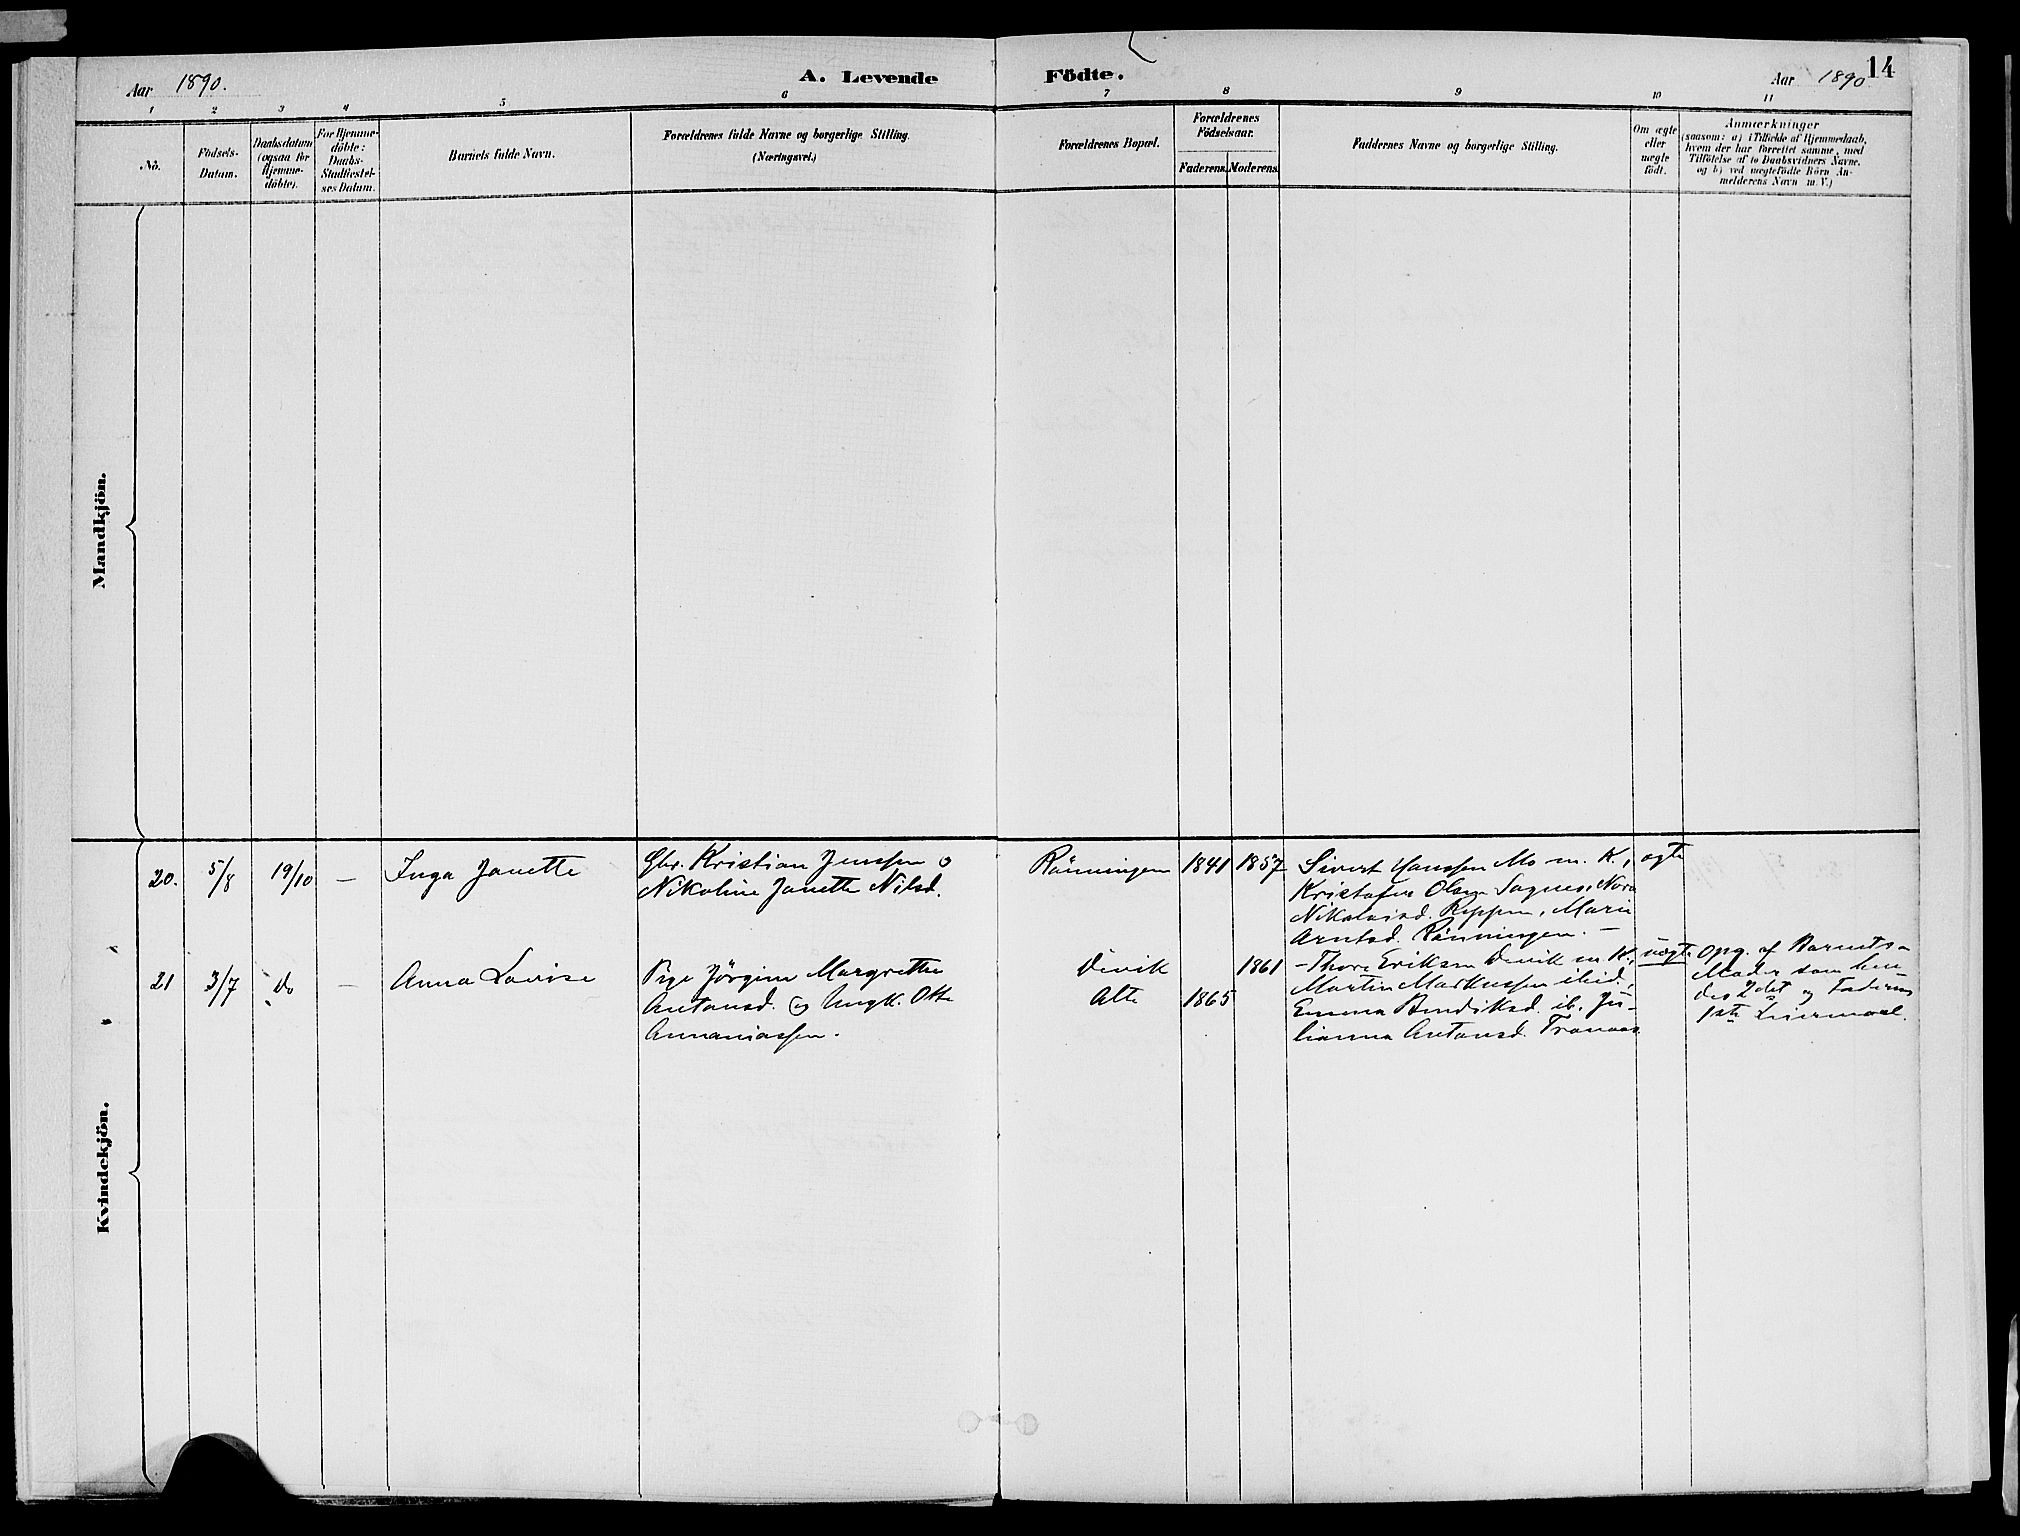 Aar 1890.
A. Levende
Födte.
Aar 1890
14
1 2 3 4 5 6 7 8 9 10 11
No.
Födsels-
Datum.
Daabsdatum
(ogsaa for
Hjemme-
döbte).
For Hjemme-
döbte:
Daabs-
Stadfæstel-
ses Datum.
Barnets fulde Navn.
Forældrenes fulde Navne og borgerlige Stilling.
(Næringsvei.)
Forældrenes Bopæl.
Forældrenes
Födselsaar.
Faderens. Moderens.
Faddernes Navne og borgerlige Stilling.
Om ægte
eller
uægte
født.
Anmærkninger
(saasom: a) i Tilfælde af Hjemmedaab,
hvem der har forrettet samme, med
Tilföielse af to Daabsvidners Navne,
og b) ved uægtefödte Börn An-
melderens Navn m. V.)
Mandkjön.
Kvindekjön.
20. 5/8 19/10 — Inga Janette
Gbr. Kristian Jenssen o
Nikoline Janette Nilsd.
Rönningen 1841 1857
Sivert Hanssen Mo m. K.,
Kristofer Olsen Sagnes, Nora
Nikolaisd. Reppen, Marie
Arntsd. Rönningen. —
ægte
21 3/7 do — Anna Lovise
Pige Jörgine Margrethe
Antonsd. og Ungk. Otto
Annaniassen.
Devik 1861
Alte 1865
— Thore Eriksen Devik m K.,
Martin Markussen ibid,
Emma Bendiksd. ib. Ju-
lianna Antonsd. Tranaas
uægte
Opg. af Barnets
Moder som hen-
des 2det og Faderens
1ste Leiermaal.